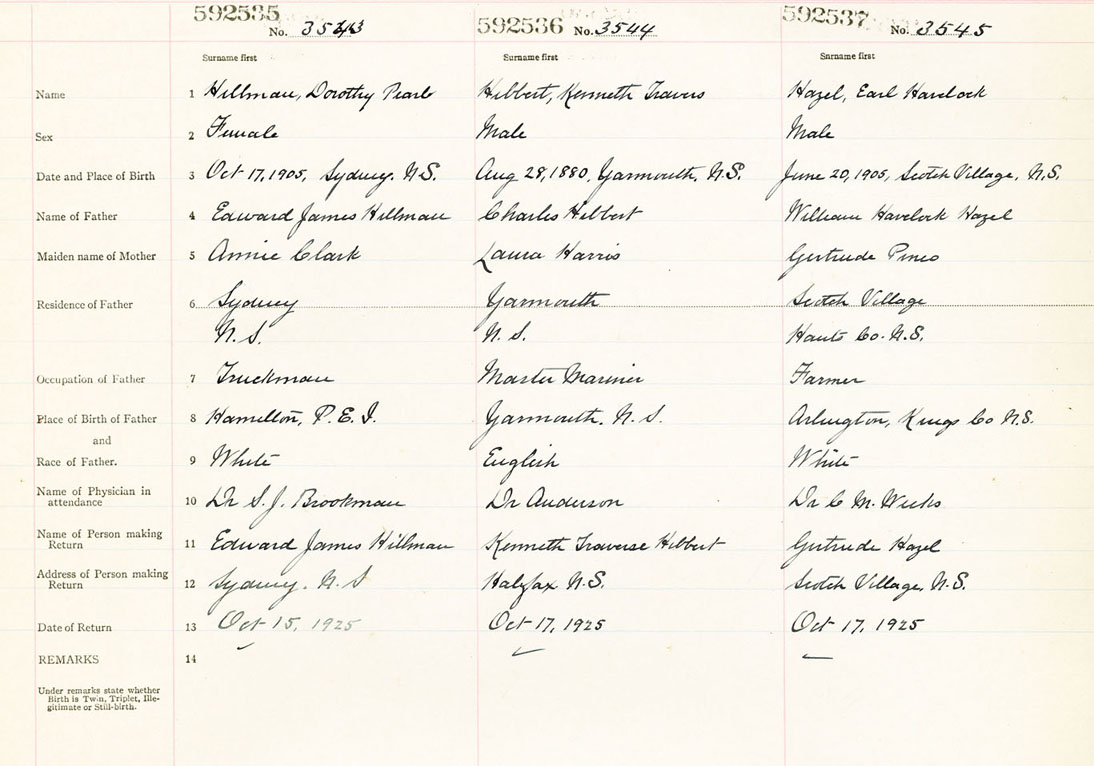 592535 592536 592537
No. 3543 No. 3544 No. 3545
Surname first Surname first Surname first
Name 1 Hillman, Dorothy Pearl Hibbert, Kenneth Travers Hazel, Earl Havelock
Sex 2 Female Male Male
Date and Place of Birth 3 Oct 17, 1905, Sydney. N.S. Aug 28, 1880, Yarmouth, N.S. June 20, 1905, Scotch Village, N.S.
Name of Father 4 Edward James Hillman Charles Hibbert William Havelock Hazel
Maiden name of Mother 5 Annie Clark Laura Harris Gertrude Pineo
Residence of Father 6 Sydney Yarmouth Scotch Village
N.S. N. S. Hants Co. N.S.
Occupation of Father 7 Truckman Master Mariner Farmer
Place of Birth of Father 8 Hamilton, P.E.I. Yarmouth. N. S. Arlington, Kings Co N.S.
and
Race of Father. 9 White English White
Name of Physician in
attendance 10 Dr S. J. Brookman Dr Anderson Dr C M. Weeks
Name of Person making
Return 11 Edward James Hillman Kenneth Traverse Hibbert Gertrude Hazel
Address of Person making
Return 12 Sydney. N. S Halifax N.S. Scotch Village, N.S.
Date of Return 13 Oct 15, 1925 Oct 17, 1925 Oct 17, 1925
REMARKS 14
Under remarks state whether
Birth is Twin, Triplet, Ille-
gitimate or Still-birth.